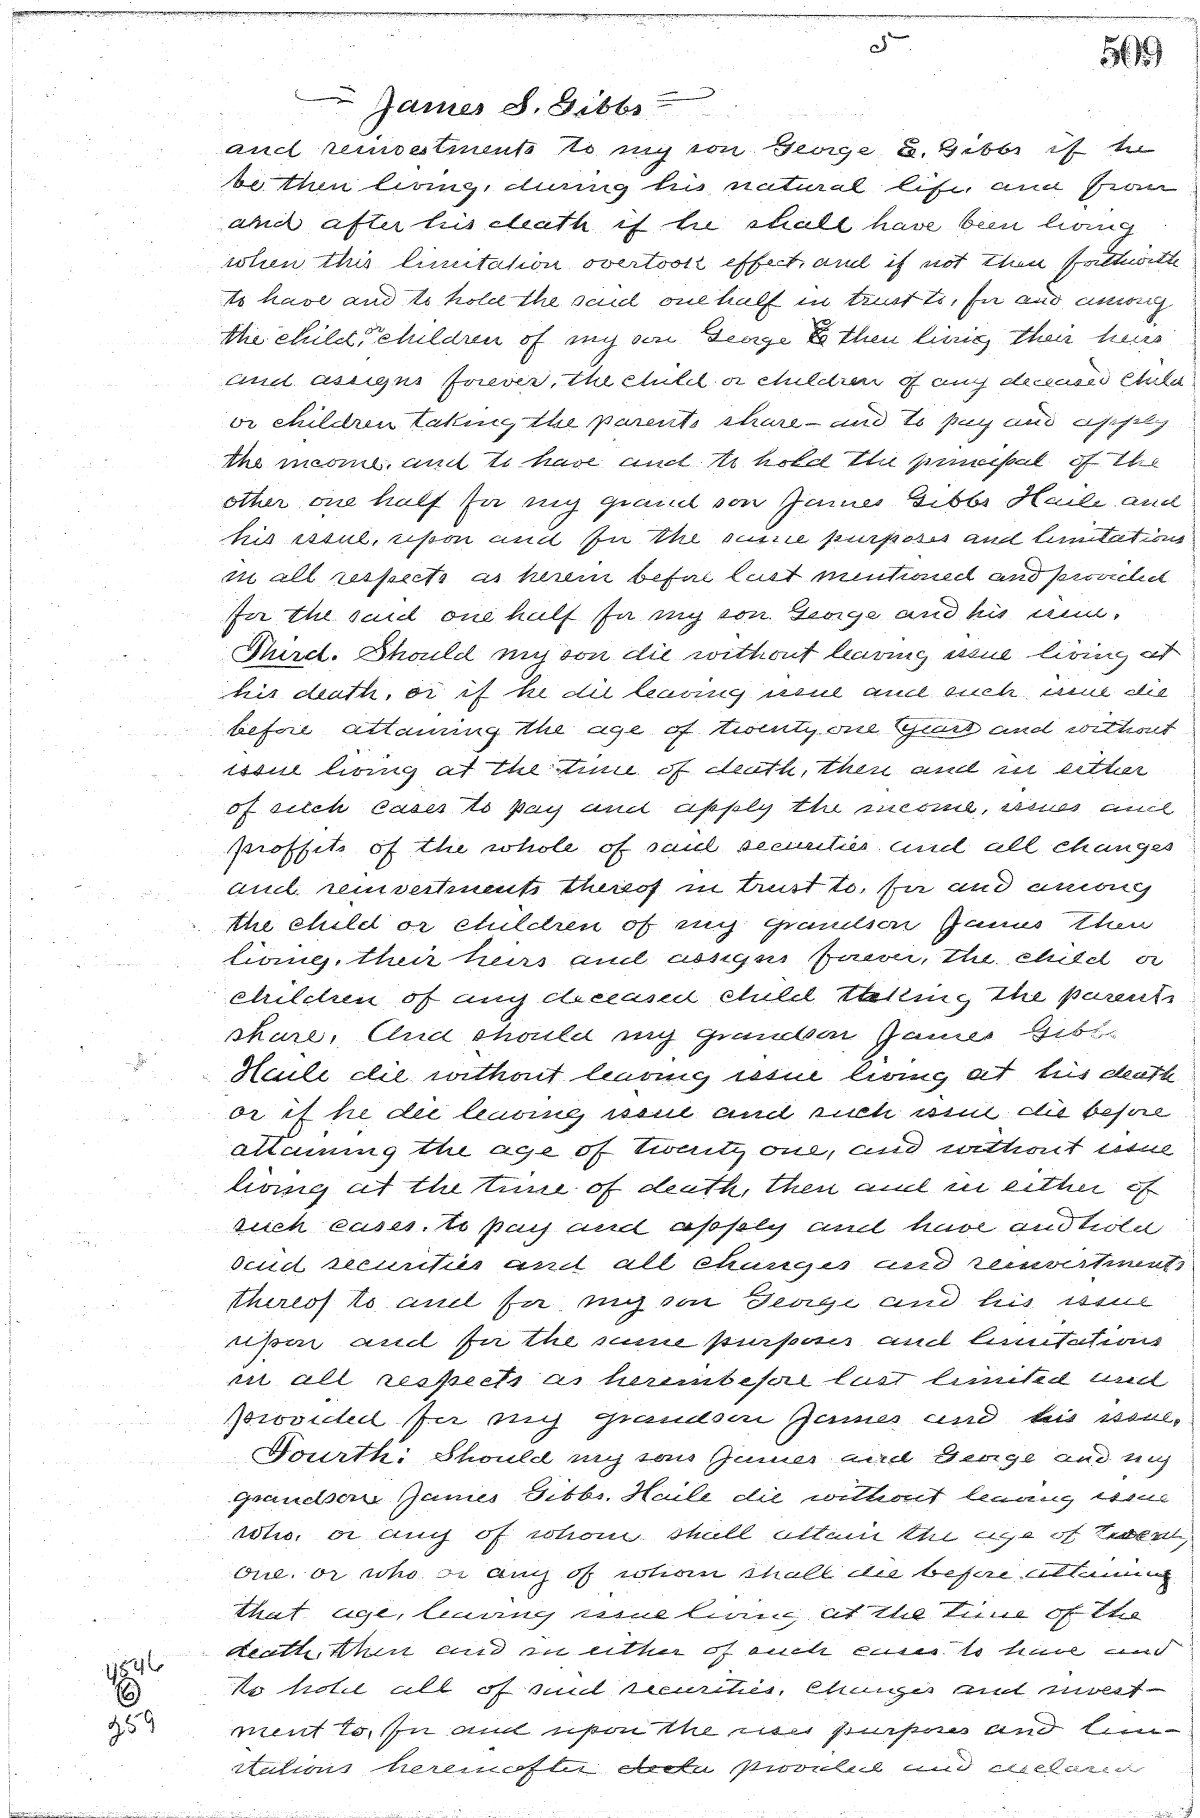 5
509
James S. Gibbs
and reinvestments to my son George E. Gibbs if he
be then living, during his natural life, and from
and after his death if he shall have been living
when this limitation overtook effect, and if not then forthwith
to have and to hold the said one half in trust to, for and among
the child, or children of my son George E then living their heirs
and assigns forever, the child or children of any deceased child
or children taking the parents share - and to pay and apply
the income, and to have and to hold the principal of the
other one half for my grand son James Gibbs Haile and
his issue, upon and for the same purposes and limitations
in all respects as herein before last mentioned and provided
for the said one half for my son George and his issue.
Third. Should my son die without leaving issue living at
his death, or if he die leaving issue and such issue die
before attaining the age of twenty one years and without
issue living at the time of death, then and in either
of such cases to pay and apply the income, issues and
proffits of the whole of said securities and all changes
and reinvestments thereof in trust to, for and among
the child or children of my grandson James then
living, their heirs and assigns forever, the child or
children of any deceased child taking the parents
share. And should my grandson James Gibbs
Haile die without leaving issue living at his death
or if he die leaving issue and such issue die before
attaining the age of twenty one, and without issue
living at the time of death, then and in either of
such cases, to pay and apply and have and hold
said securities and all changes and reinvestments
thereof to and for my son George and his issue
upon and for the same purposes and limitations
in all respects as hereinbefore last limited and
provided for my grandson James and his issue.
Fourth: Should my sons James and George and my
grandson James Gibbs. Haile die without leaving issue
who, or any of whom shall attain the age of twenty
one. or who or any of whom shall die before attaining
that age, leaving issue living at the time of the
death, then and in either of such cases to have and
to hold all of said securities, changes and invest-
ment to, for and upon the uses purposes and lim-
itations hereinafter provided and declared
4546
6
959